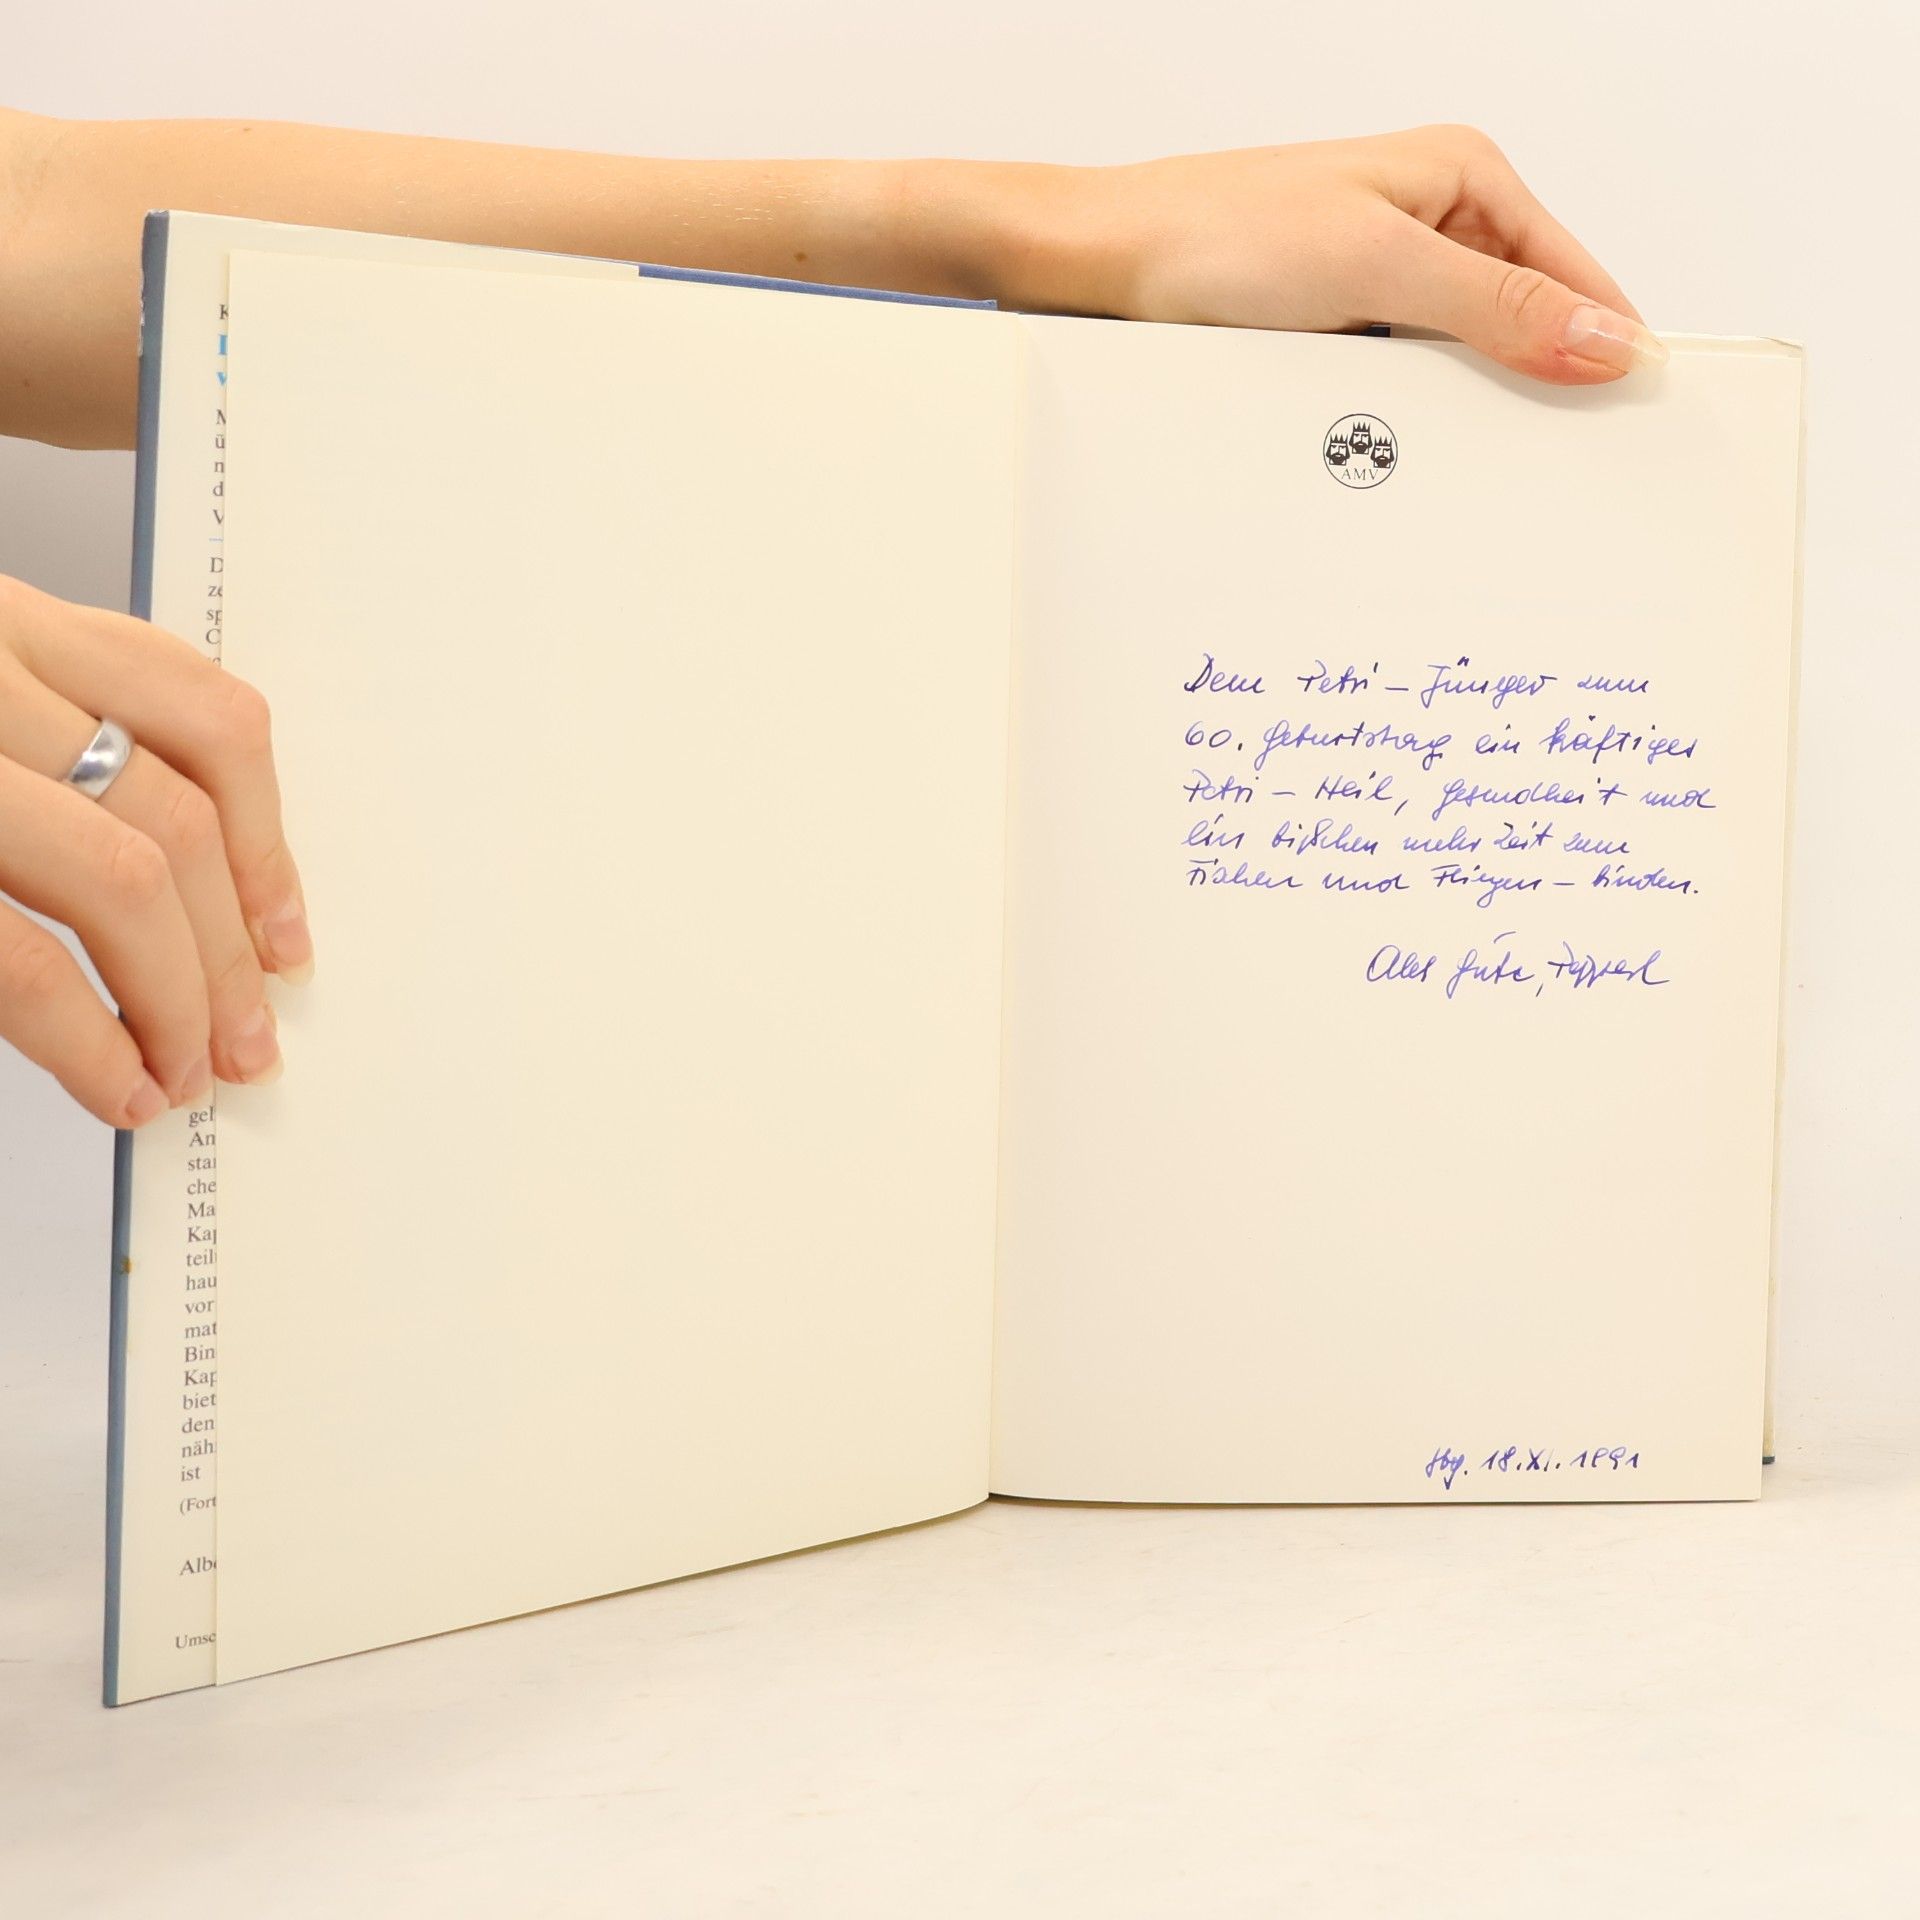 K
M
ü
n
d
V
D
ze
sp
C
gel
An
star
che
Ma
Kap
teil
hau
vor
mat
Bin
Kap
biet
den
näh
ist
(Fort
Albe
Umsc
AMV
Dem Petri – Jünger zum
60. Geburtstag ein kräftiges
Petri – Heil, Gesundheit und
ein bißchen mehr Zeit zum
Fischen und Fliegen – binden.
Alles Gute,
18.XI.1991